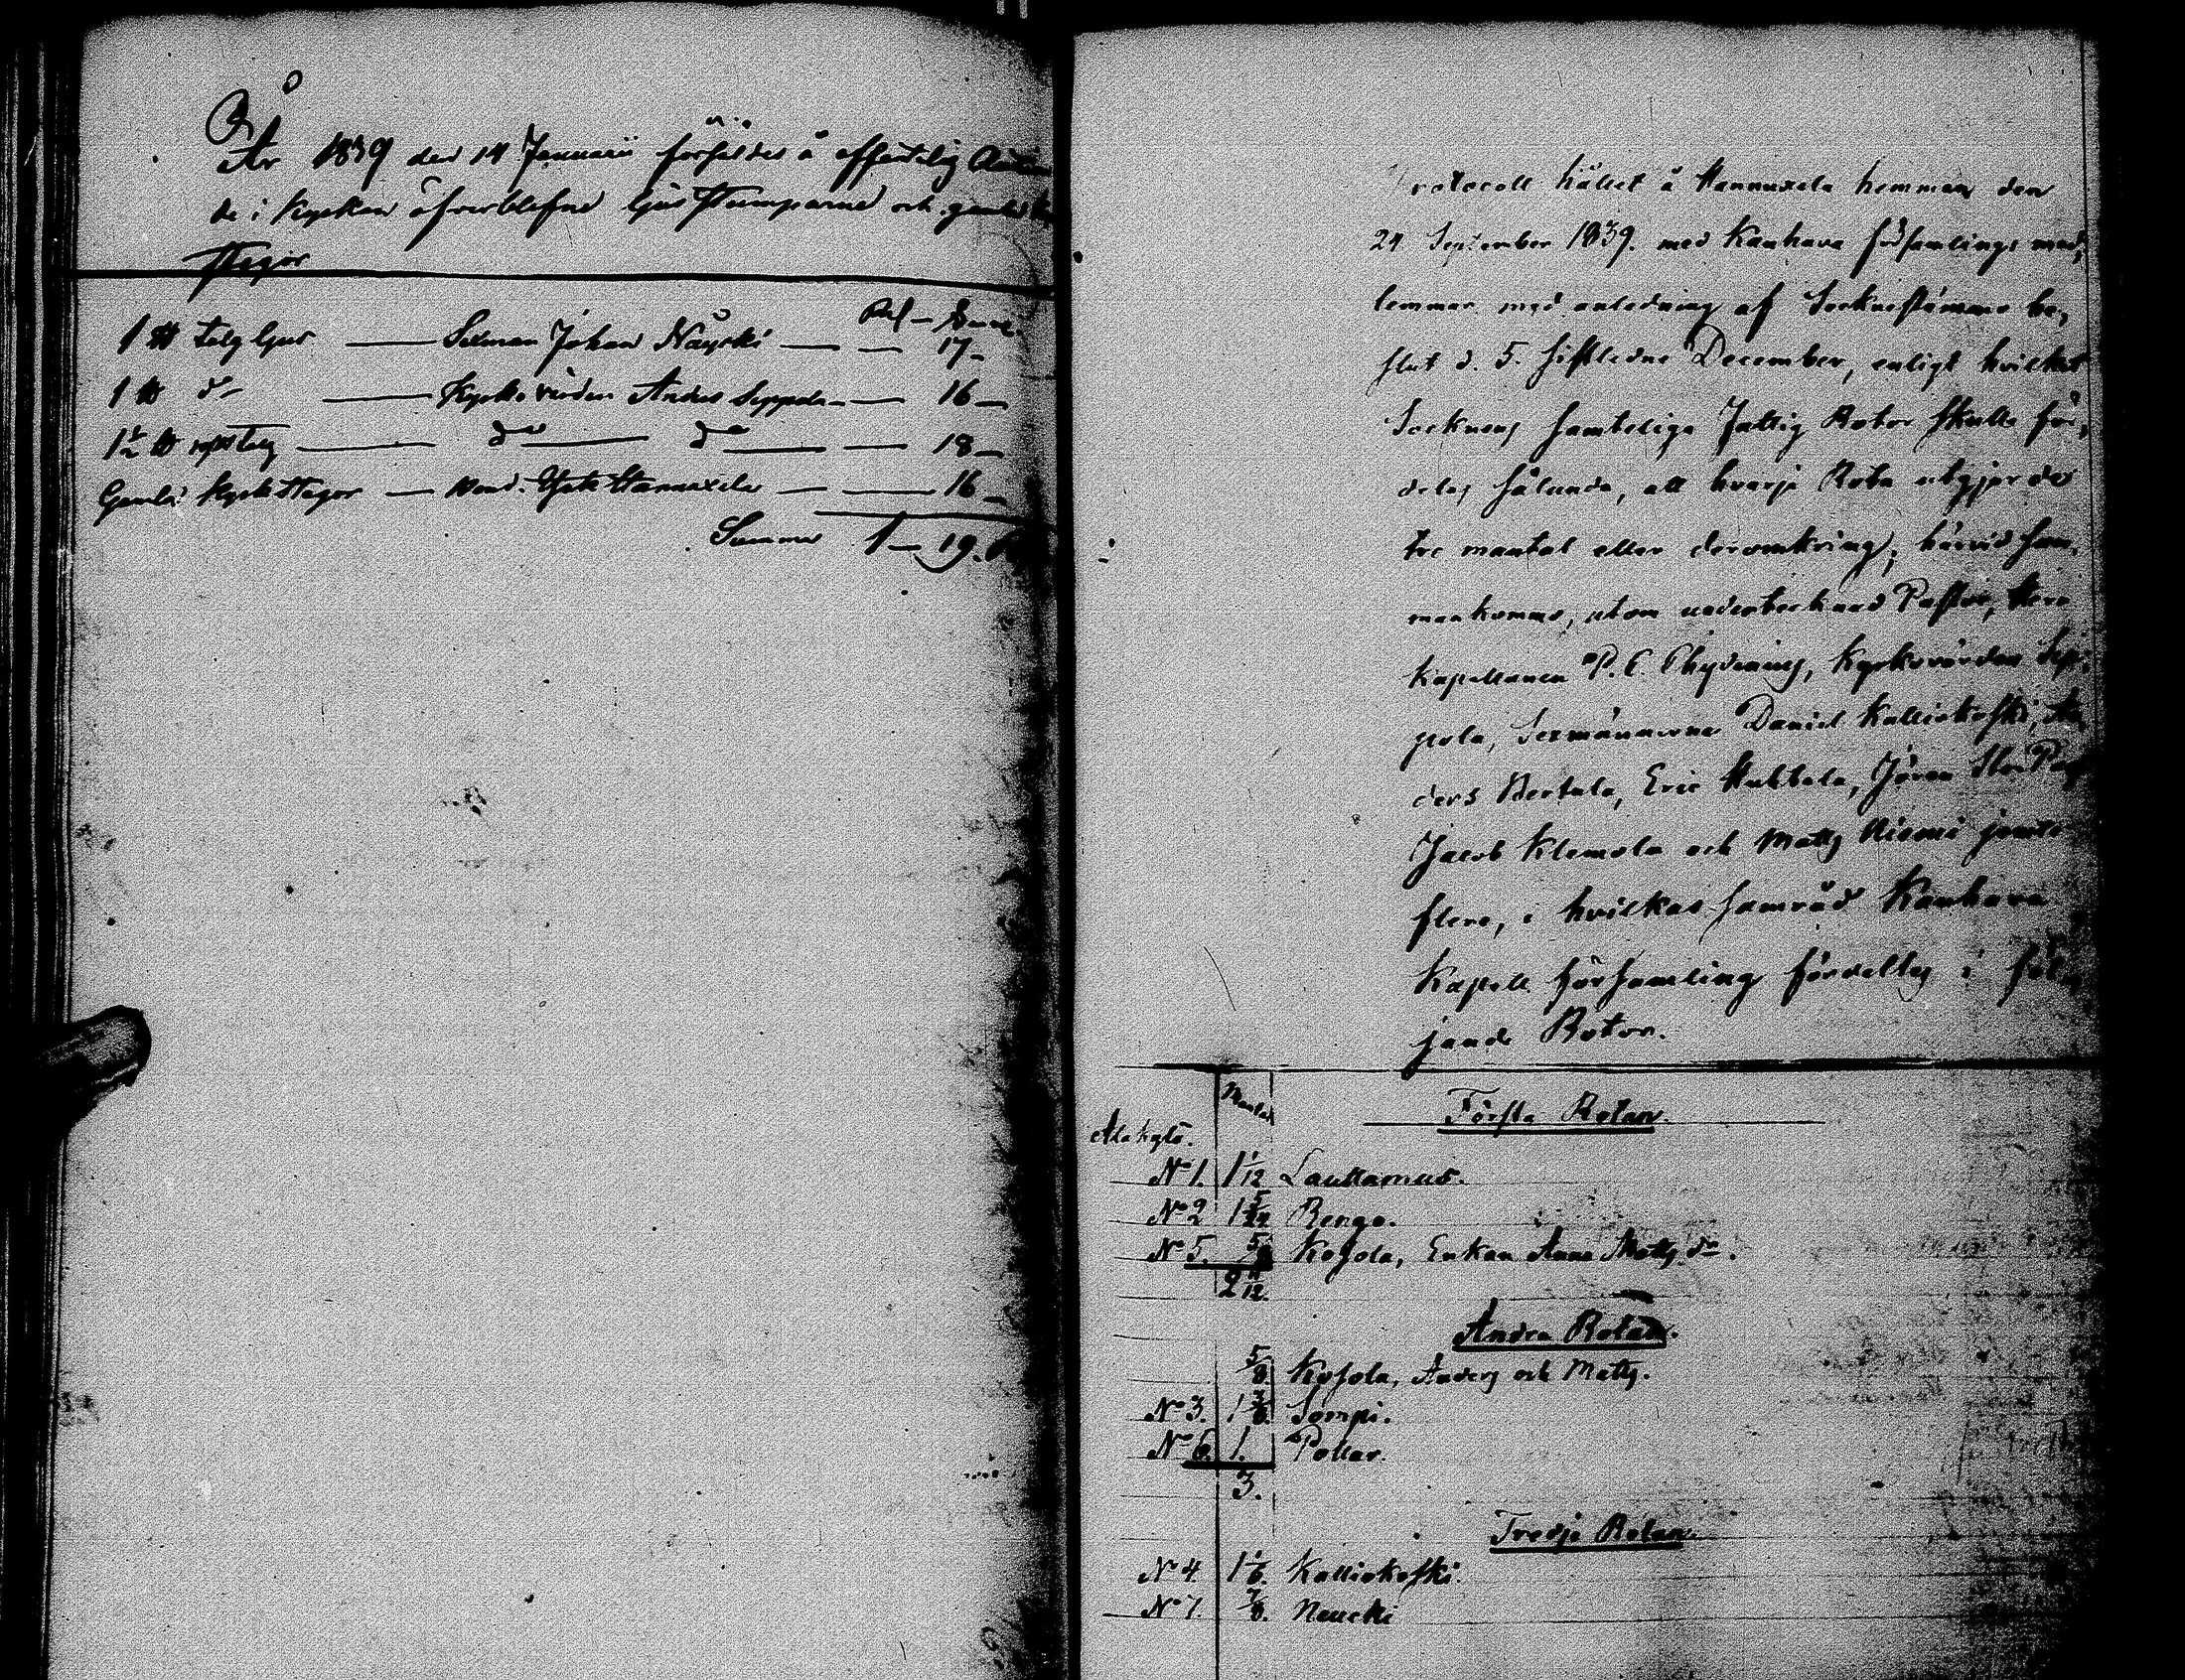 År 1839 den 14 Januarii försåldes å offentelig
de i Kyrkan öfverblefne ljus stumparne och gamla
stegor
Rbl — 
1 ℔ talg ljus — Sexman Johan Näyrki — — 17 —
1 ℔ do — Kyrko värden Anders Seppola — — 16 —
1½ ℔ talg — do — do — — 18 —
Gamla Kyrk stegor — Hannuxela — — 16 —
Summa 1 — 19.
rotocoll hållet å Hannuxela hemman den
24 September 1839. med Kauhava församlings med,
lemmar med anledning af Sockne stämmo be,
slut d. 5. sistledne December, enligt hvilket
Socknens samteliga Fattig Rotor skulle för,
delas sålunda, att hvarje Rota utgjordes
tre mantal eller deromkring; härvid sam,
mankommo, utom undertecknad Pastor, Herr
Kapellanen P. C. Chydenius, Kyrkovärden Sep,
pola, Sexmännerne Daniel Kalliokoski, An,
ders Bertula, Eric Huhtala, Jöran
Jacob Klemola och Matts Niemi jemte
flere, i hvilkas samråd Kauhava
Kapell församling fördeltes i föl,
jande Rotor.
Mantal
Första Rotan.
Alakylä.
No 1. 1 1/12 Lauttamus.
No 2 1 5/24 Rengo.
No 5. 5/8 Kosola, Enkan Anna Matts dr.
2 11/12.
Andra Rotan.
5/8. Kosola, Anders och Matts.
No 3. 1 3/8. Sompi.
No 6. 1. Pollar.
3.
Tredje Rotan.
No 4. 1 1/6. Kalliokoski.
No 7. 7/8. Neucki